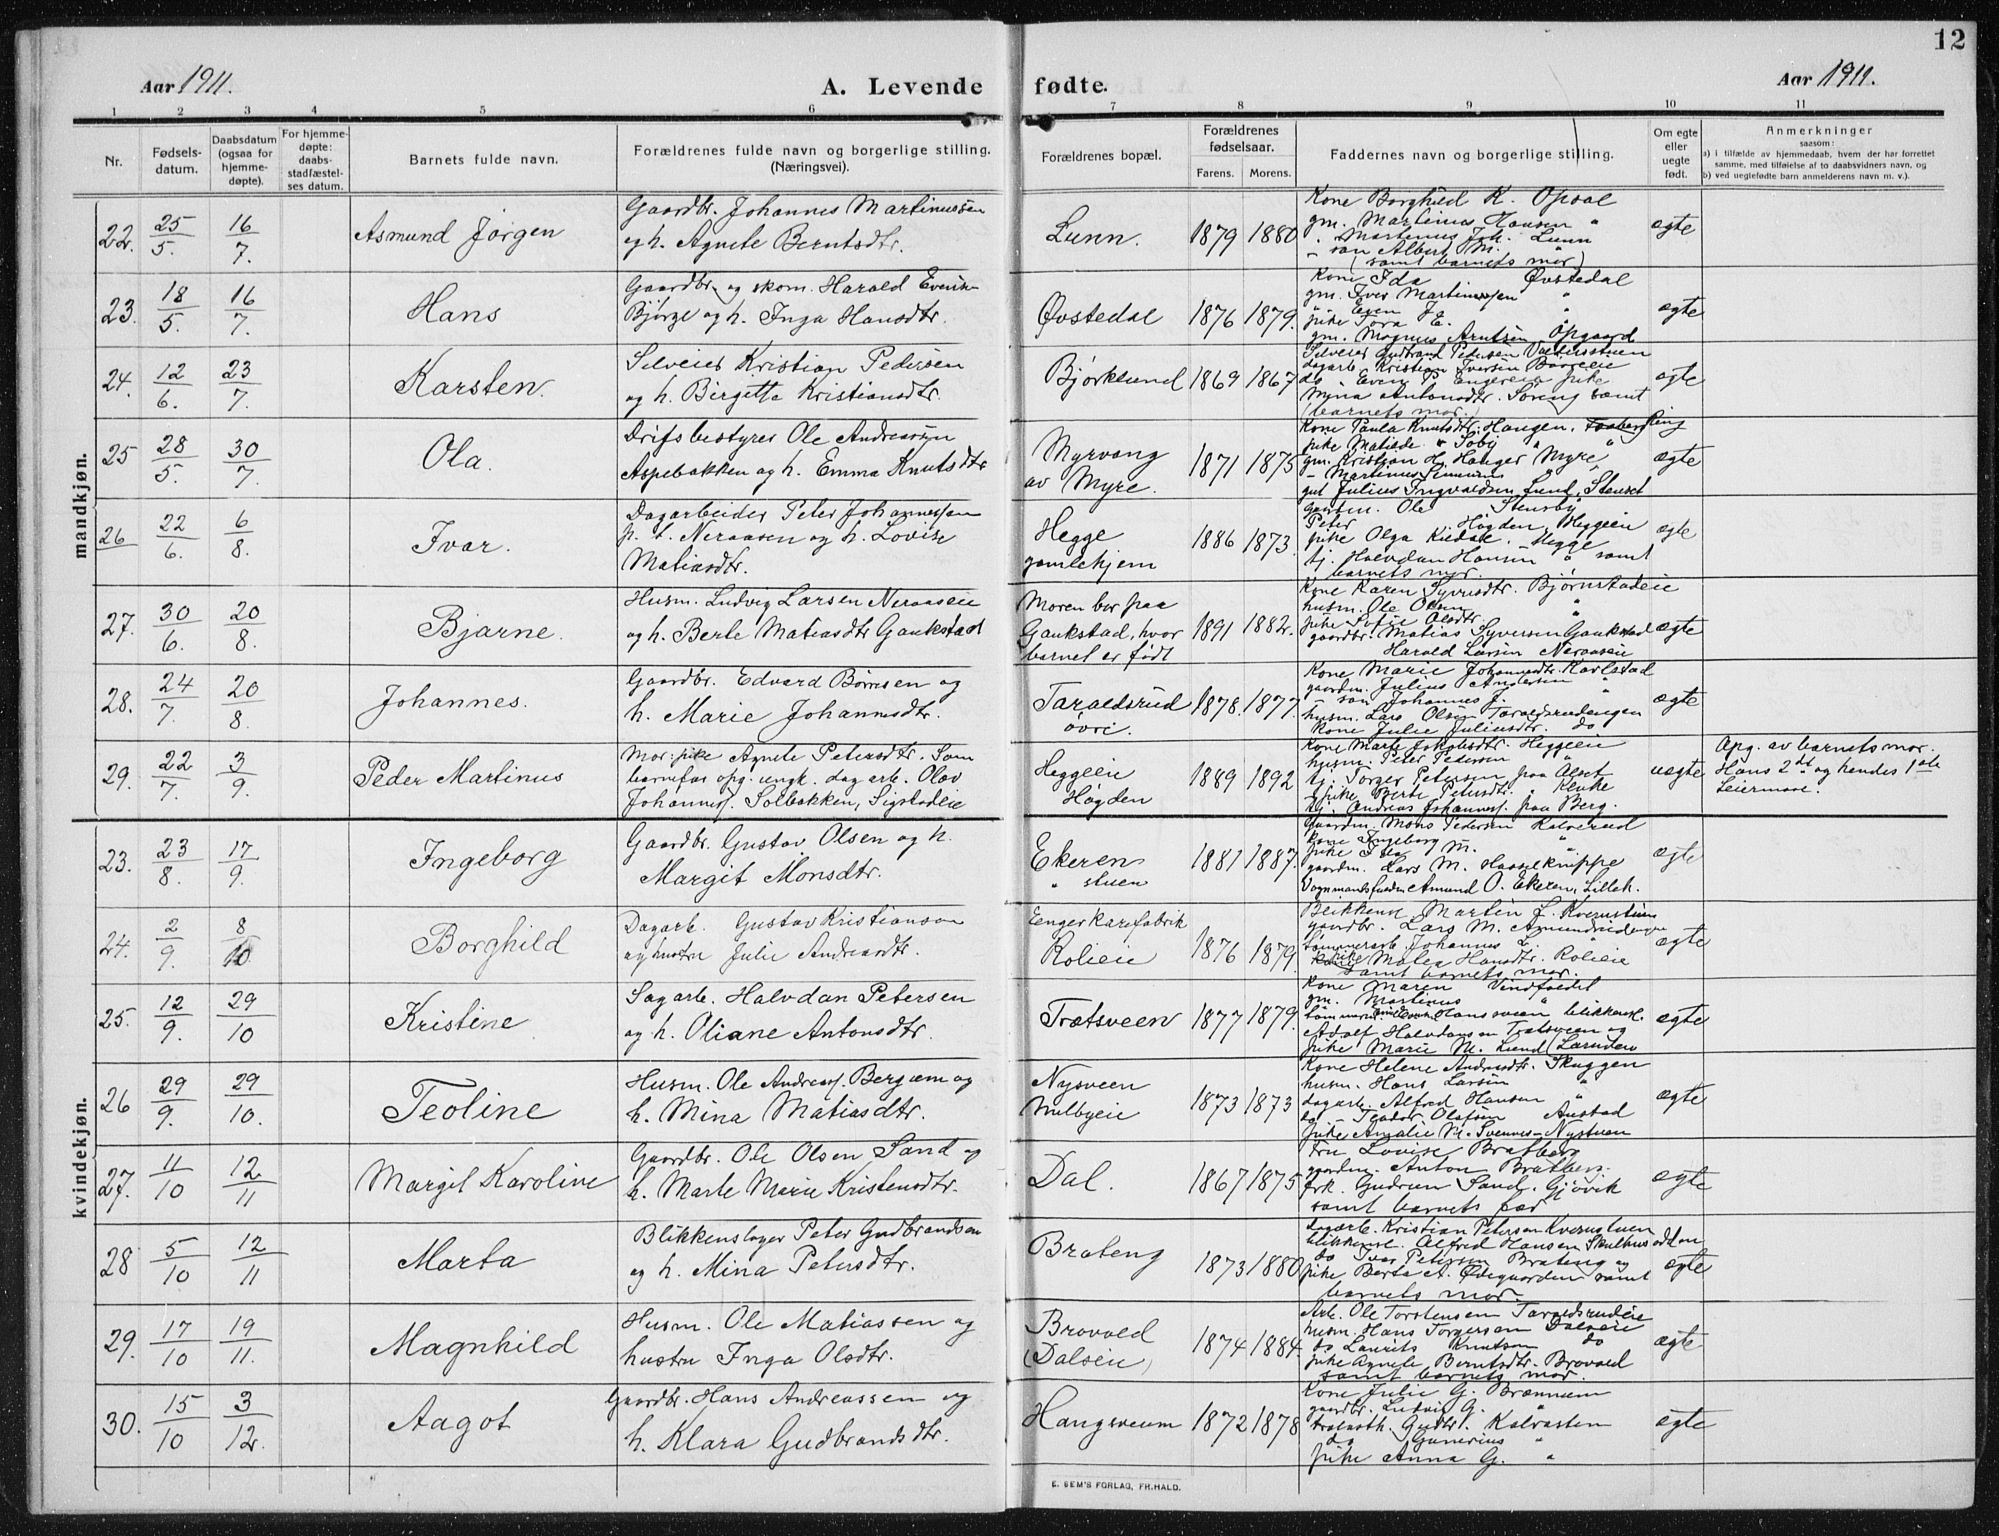 12
Aar 1911.
A. Levende fødte.
Aar 1911.
1 2 3 4 5 6 7 8 9 10 11
Nr.
Fødsels-
datum.
Daabsdatum
(ogsaa for
hjemme-
døpte).
For hjemme-
døpte:
daabs-
stadfæstel-
ses datum.
Barnets fulde navn.
Forældrenes fulde navn og borgerlige stilling.
(Næringsvei).
Forældrenes bopæl.
Forældrenes
fødselsaar.
Farens. Morens.
Faddernes navn og borgerlige stilling.
Om egte
eller
uegte
født.
Anmerkninger
saasom:
a) i tilfælde av hjemmedaab, hvem der har forrettet
samme, med tilføielse af to daabsvidners navn, og
b) ved uegtefødte barn anmelderens navn m. v.).
mandkjøn.
22. 25/5. 16/7. Asmund Jørgen
Gaardbr. Johannes Martinussen
og h. Agnete Berntsdtr.
Lunn. 1879 1880
Kone Borghild K. Opsal
gm. Martinus Hansen "
" Martinus Joh. Lunn
- søn Albert M. "
(samt barnets mor)
egte
23. 18/5. 16/7. Hans
Gaardbr. og skom. Harald Evensen
Bjørge og h. Inga Hansdtr.
Øvstedal 1876 1879.
Kone Ida Øvstedal
gm. Iver Martinussen "
" Even J. "
pike Tora E. "
gm. Magnus Arntsen Opgaard
egte
24. 12/6. 23/7. Karsten.
Selveier Kristian Pedersen
og h. Birgitte Kristiansdtr.
Bjørklund 1869 1867
Selveier Gudbrand Pedersen
dagarb. Kristian Iversen
do Even P. Engereie pike
Mina Antonsdtr. Soreng samt
(barnets mor.)
egte
25 28/5. 30/7. Ola.
Drifsbestyrer Ole Andreassen
Aspebakken og h. Emma Knutsdtr
Myrvang
av Myre. 1871 1875
Kone Paula Knutsdtr. Haugen, Ring
pike Matilde " Soby " "
gm. Kristian H. Hanger Myre "
- Martinus Simensen "
gut Julius Ingvaldsen Lund, Stenset
egte
26 22/6. 6/8. Ivar.
Dagarbeider Peter Johannessen
p. t. Neraasen og h. Lovise
Matiasdtr.
Hegge
gamlehjem 1886 1873.
Ole Stensby
Peter Høgden, Heggeeie
pike Olga Hegge
tj. Halvdan Hansen " samt
barnets mor.
egte
27. 30/6. 20/8. Bjarne.
Husm. Ludvig Larsen Neraaseie
og h. Berte Matiasdtr Gaukstad
Moren bor paa
Gaukstad, hvor
barnet er født 1891 1882.
Kone Karen Syversdtr. Bjørnstadeie
husm. Ole Olsen "
pike Sofie Olsdtr. "
gaardbr. Matias Syversen Gaukstad
Harald Larsen Neraaseie
egte
28. 24/7. 20/8. Johannes.
Gaardbr. Edvard Børresen og
h. Marie Johannesdtr.
Taraldsrud
øvre. 1878. 1877.
Kone Marie Johannesdtr. Karlstad
gaardm. Julius Andersen "
- søn Johannes J. "
husm. Lars Olsen Taraldsrudengen
Kone Julie Juliusdtr. do
egte
29. 22/7. 3/9. Peder Martinus
Mor: pike Agnete Petersdtr. Som
barnefar opg. ungk. dagarb. Olav
Johannes. Solbakken, Sigstadeie
Heggeeie
Høgden 1889 1892
Kone Marte Jakobsdtr. Heggeeie
husm. Peter Pedersen "
tj. Torger Petersen paa Alset
pike Berte Petersdtr. "
tj. Andreas Johannes. paa Berg.
uegte
Opg. av barnets mor.
Hans 2det og hendes 1ste
Leiermaal.
kvindekjøn.
23. 23/8. 17/9. Ingeborg
Gaardbr. Gustav Olsen og h.
Margit Monsdtr.
Ekeren
" stuen 1881 1887.
Gaardm. Mons Pedersen Kalverud
kone Ingeborg "
pike Ida M. "
gaardm. Lars M. Hasselknippe
Vognmandsfuldm Amund O. Ekeren, Lilleh.
egte
24. 2/9. 8/10. Borghild
Dagarb. Gustav Kristiansen
og hustru Julie Andreasdtr.
Eengerkarefabrik
Rolieie 1876 1879.
Blikkensl. Martin J. Kvernstuen
gaardbr. Lars M. Amundrudengen
tømmerarb. Johannes L. "
pike Malea Hansdtr. Rolieie
samt barnets mor.
egte
25. 12/9. 29/10. Kristine
Sagarb. Halvdan Petersen
og h. Oliane Antonsdtr.
Trætsveen 1877 1879.
Kone Maren Vindfaldet
gm. Martinus "
Hansveen blikkensl.
Adolf Halvdansen Trætsveen og
pike Marie M. Lund (Larudeie
egte
26 29/9. 29/10. Teoline
Husm. Ole Andreas. Bergum og
h. Mina Matiasdtr.
Nysveen
Nulbyeie 1873 1873
Kone Helene Andersdtr. Skuggen
husm. Hans Larsen "
dagarb. Alfred Hansen "
do - Teodor Olafsen Austad
pike Amalie M. Svennes-Nystuen
egte
27. 11/10 12/11 Margit Karoline
Gaardbr. Ole Olsen Sand og
h. Marte Marie Kristensdtr.
Dal. 1867 1875
Fru Lovise Bratberg
gaardm. Anton Bratberg.
frk. Gudrun Sand. Gjøvik
samt barnets far
egte
28 5/10 12/11 Marta
Blikkenslager Peter Gudbrandsen
og h. Mina Petersdtr.
Brateng 1873 1880
Dagarb. Kristian Petersen Kvernstuen
blikkensl. Alfred Hansen Skulhusodden
do Ivar Petersen Brateng og
pike Berta A. Ødegaarden samt
barnets mor.
egte
29. 17/10 19/11. Magnhild
Husm. Ole Matiassen og
hustru Inga Olsdtr.
Brovold
(Dalseie) 1874 1884.
Arb. Ole Torstensen Taraldsrudeie
husm. Hans Torgersen Dalseie
do Laurits Knutsen do
pike Agnete Berntsdtr. Brovold
samt barnets mor.
egte
30. 15/10 3/12. Aagot
Gaardbr. Hans Andreassen og
h. Klara Gudbrandsdtr.
Haugsveum 1872 1878
Kone Julie G. Brænnum
gaardbr. Ludvig G. "
Gudbr. Kalrasten
do Gunerius "
pike Anna G. "
egte
E. SEM'S FORLAG, FR.HALD.